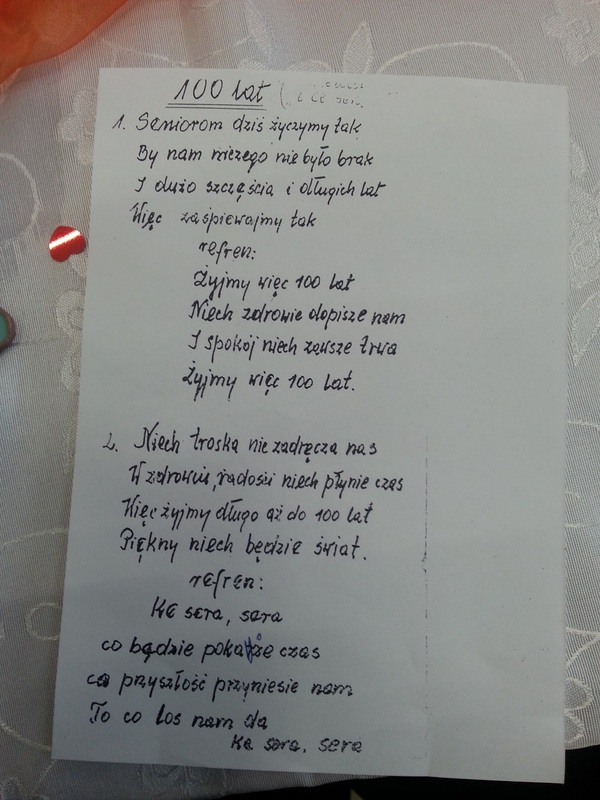 100 lat
1. Seniorom dziś życzymy tak
By nam niczego nie było brak
I dużo szczęścia i długich lat
Więc zaśpiewajmy tak
refren:
Żyjmy więc 100 lat
Niech zdrowie dopisze nam
I spokój niech zawsze trwa
Żyjmy więc 100 lat.
2. Niech troska nie zadręcza nas
W zdrowiu, radości niech płynie czas
Więc żyjmy długo aż do 100 lat
Piękny niech będzie świat.
refren:
Ke sera, sera
co będzie pokaże czas
co przyszłość przyniesie nam
To co los nam da
Ke sera, sera